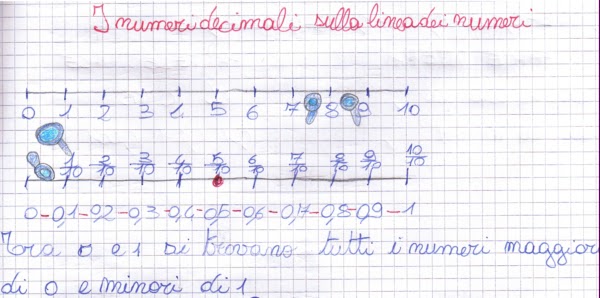 I numeri decimali sulla linea dei numeri
0 1 2 3 4 5 6 7 8 9 10
1/10 2/10 3/10 4/10 5/10 6/10 7/10 8/10 9/10 10/10
0-0,1-0,2-0,3-0,4-0,5-0,6-0,7-0,8-0,9-1
Tra 0 e 1 si trovano tutti i numeri maggior
di 0 e minori di 1